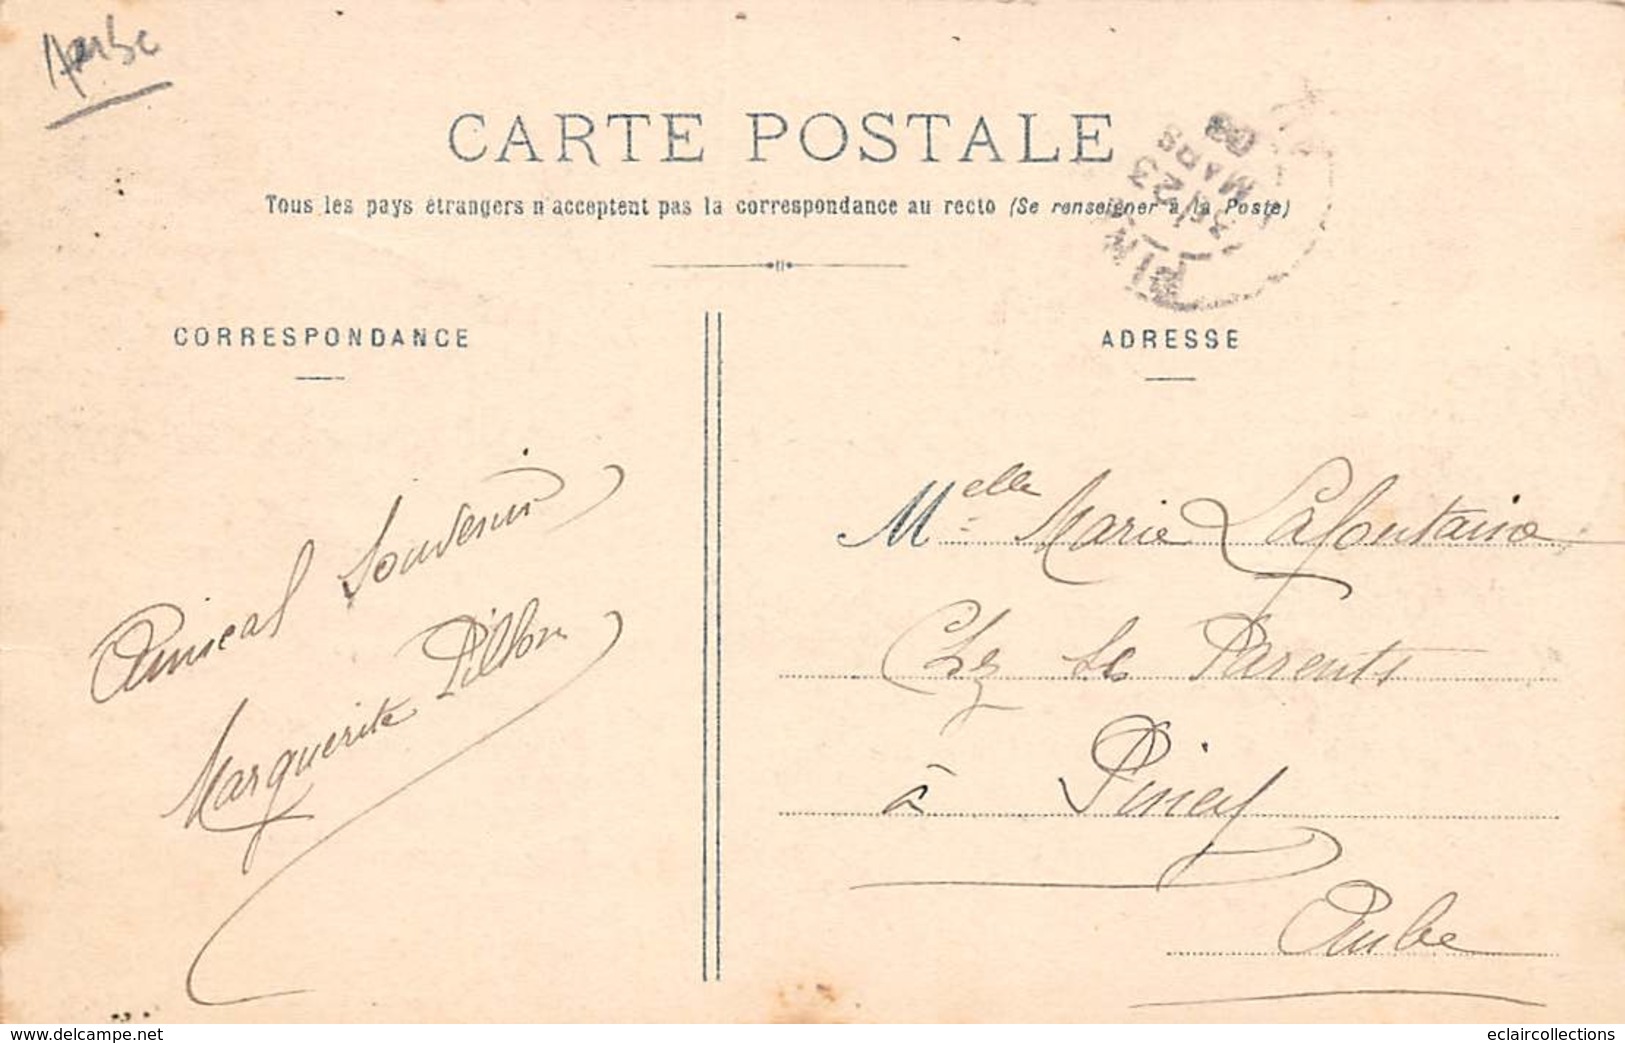 Aube
CARTE POSTALE
Tous les pays étrangers n'acceptent pas la correspondance au recto (Se renseigner à la Poste)
PINEY
3E/23
MARS
08
CORRESPONDANCE
ADRESSE
Amical Souvenir
Marguerite Pillon
Melle Marie Lafontaine
Chz Ses Parents
à Piney
Aube
www.delcampe.net
eclaircollections